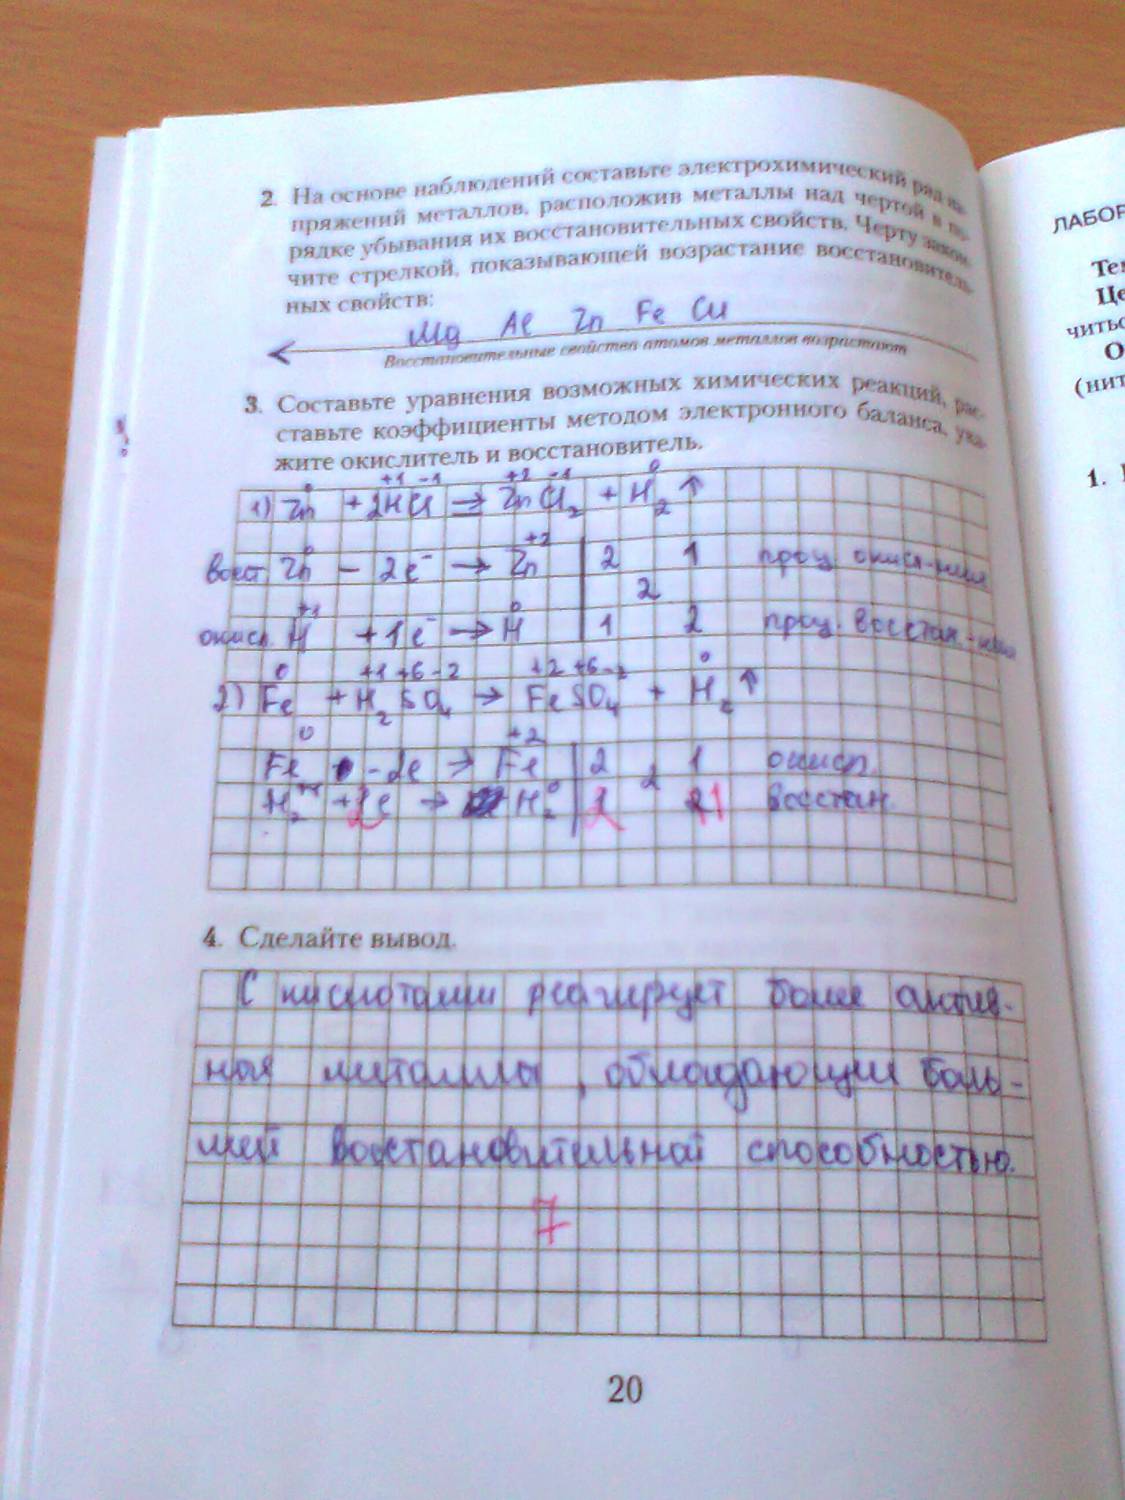 2. На основе наблюдений составьте электрохимический ряд на-
пряжений металлов, расположив металлы над чертой в по-
рядке убывания их восстановительных свойств. Черту закон-
чите стрелкой, показывающей возрастание восстановитель-
ных свойств:
Mg Al Zn Fe Cu
Восстановительные свойства атомов металлов возрастают
3. Составьте уравнения возможных химических реакций, рас-
ставьте коэффициенты методом электронного баланса, ука-
жите окислитель и восстановитель.
0 +1 -1 +2 -1 0
1) Zn + 2HCl → ZnCl₂ + H₂ ↑
0 +2
восст. Zn - 2e⁻ → Zn | 2 1 проц. окисл-ния
2
+1 0
окисл. H + 1e⁻ → H | 1 2 проц. восстан.-ния
0 +1 +6 -2 +2 +6 -2 0
2) Fe + H₂SO₄ → FeSO₄ + H₂ ↑
0 +2
Fe - 2e → Fe | 2 1 окисл.
2
H₂⁺¹ + 2e → H₂⁰ | 2 1 восстан.
4. Сделайте вывод.
С кислотами реагирует более актив-
ная металлы, обладающии боль-
шей восстановительной способностью.
7
20
ЛАБОР
Тем
Це
читьс
О
(нит
1.